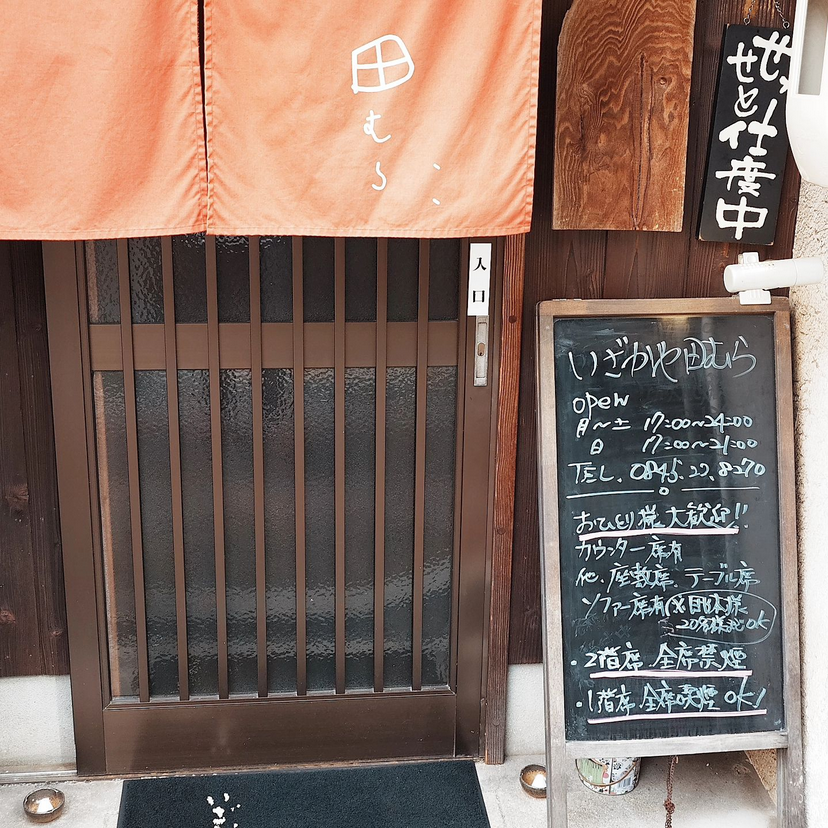 田むら
入口
せと
仕度中
いざかや田むら
open
月〜土 17:00〜24:00
日 17:00〜21:00
TEL. 0845.22.8270
おひとり様大歓迎!!
カウンター席有
他、座敷席、テーブル席
ソファー席有 団体様
20名様迄OK
・2階席 全席禁煙
・1階席 全席喫煙OK!